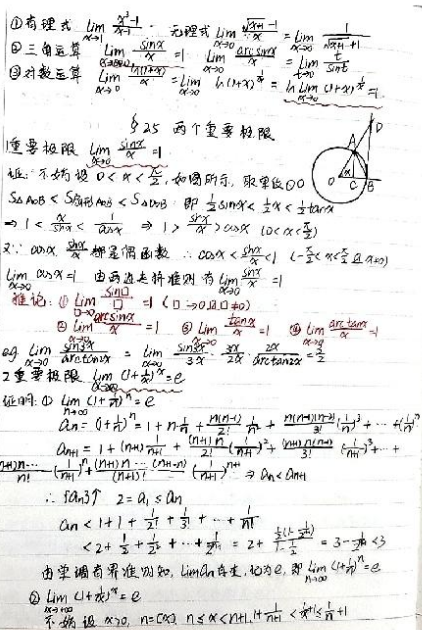 ①有理式 lim x→1 (x³-1)/(x-1) . 无理式 lim x→0 (√(x+1) -1)/x = lim x→0 1/(√(x+1)+1)
②三角运算 lim x→0 sinx/x =1 lim x→0 arcsinx/x = lim t→0 t/sint
③对数运算 lim x→0 ln(1+x)/x = lim x→0 ln(1+x)^(1/x) = ln lim x→0 (1+x)^(1/x) =1
§2.5 两个重要极限
1重要极限 lim x→0 sinx/x =1
证: 不妨设 0<x<π/2, 如图所示, 取单位⊙O
S△AOB < S扇形AOB < S△DOB 即 ½sinx<½x<½tanx
⇒ 1< x/sinx < 1/cosx ⇒ 1> sinx/x >cosx (0<x<π/2)
又∵ cosx, sinx/x 都是偶函数 ∴ cosx< sinx/x <1 (-π/2<x<π/2且x≠0)
lim x→0 cosx=1 由两边夹准则有 lim x→0 sinx/x =1
推论: ① lim □→0 sin□/□ =1 (□→0且□≠0)
② lim x→0 arcsinx/x =1 ③ lim x→0 tanx/x =1 ④ lim x→0 arctanx/x =1
eg. lim x→0 sin3x/arctan2x = lim x→0 sin3x/3x · 3x/2x · 2x/arctan2x = 3/2
2重要极限 lim x→∞ (1+1/x)^x=e
证明: ① lim n→∞ (1+1/n)^n=e
an=(1+1/n)^n=1+n·1/n+ n(n-1)/2! 1/n² + n(n-1)(n-2)/3! (1/n)³+ ⋯ +(1/n)^n
an+1 = 1+(n+1)1/(n+1)+ (n+1)n/2! (1/(n+1))²+ (n+1)n(n-1)/3! (1/(n+1))³+ ⋯ +
(n+1)n⋯/n! (1/(n+1))^n+ (n+1)n⋯/(n+1)! (1/(n+1))^(n+1) ⇒ an<an+1
∴ {an}↑ 2=a1≤an
an<1+1+1/2!+1/3!+ ⋯ +1/n!
<2+1/2+1/2²+ ⋯ +1/2^(n-1) = 2+ ½(1-1/2^(n-1))/(1-½) = 3-1/2^(n-1) <3
由单调有界准则知, lim an存在, 记为e, 即 lim n→∞ (1+1/n)^n=e
② lim x→+∞ (1+1/x)^x=e
不妨设 x>0, n=[x], n≤x<n+1, 1+1/(n+1) < 1/x+1≤1/n+1
A
D
O
x
C
B